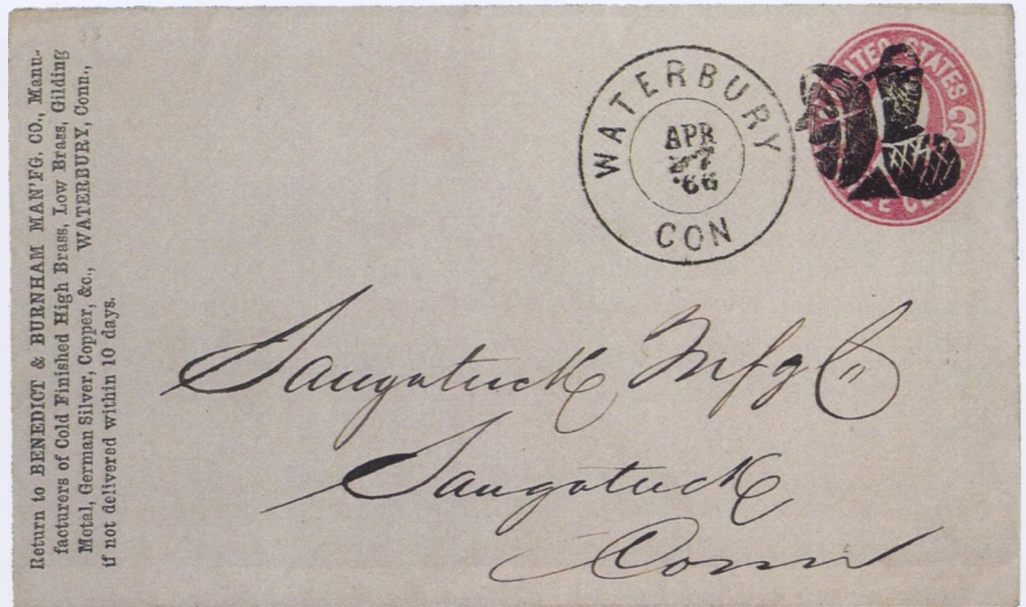 Return to BENEDICT & BURNHAM MAN'FG. CO., Manu-
facturers of Cold Finished High Brass, Low Brass, Gilding
Metal, German Silver, Copper, &c., WATERBURY, Conn.,
if not delivered within 10 days.
WATERBURY
APR
27
'66
CON
UNITED STATES
3
Saugatuck Mfg Co
Saugatuck
Conn